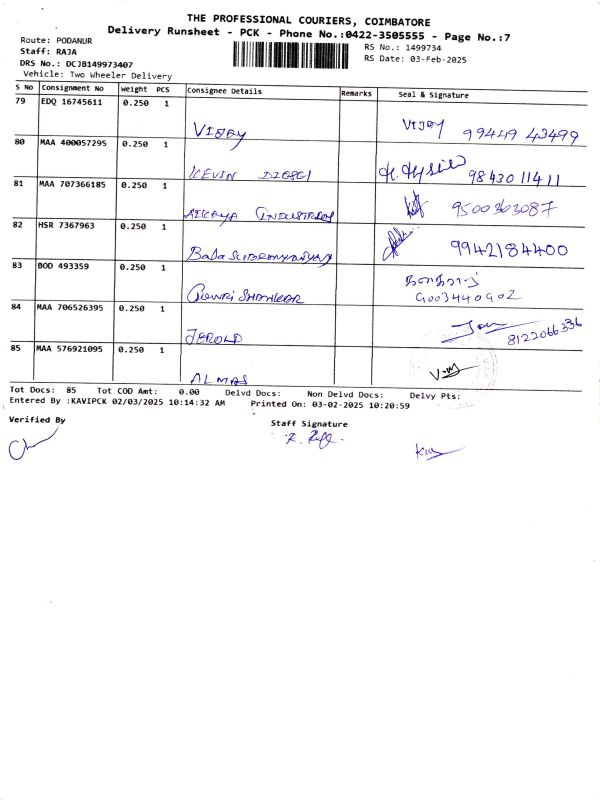 THE PROFESSIONAL COURIERS, COIMBATORE
Delivery Runsheet - PCK - Phone No.:0422-3505555 - Page No.:7
Route: PODANUR
RS No.: 1499734
Staff: RAJA
RS Date: 03-Feb-2025
DRS No.: DCJB149973407
Vehicle: Two Wheeler Delivery
S No Consignment No Weight PCS Consignee Details Remarks Seal & Signature
79 EDQ 16745611 0.250 1
VIJAY VIJAY 99449 43499
80 MAA 400057295 0.250 1
KEVIN 9843011411
81 MAA 707366185 0.250 1
INDUSTRIES 9500303087
82 HSR 7367963 0.250 1
Bala SUBRAMANIYAM 9942184400
83 BOD 493359 0.250 1
Gowri SHANKAR 9003440902
84 MAA 706526395 0.250 1
JEROLD 8122066336
85 MAA 576921095 0.250 1
ALMAS
Tot Docs: 85 Tot COD Amt: 0.00 Delvd Docs: Non Delvd Docs: Delvy Pts:
Entered By :KAVIPCK 02/03/2025 10:14:32 AM Printed On: 03-02-2025 10:20:59
Verified By
Staff Signature